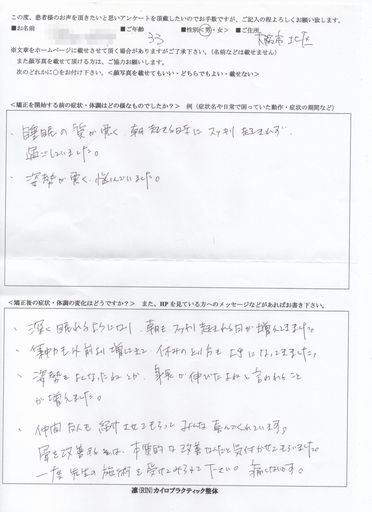 この度、患者様のお声を頂きたいと思いアンケートを頂戴したいのでお手数ですが、ご記入の程よろしくお願い致します。
■お名前 ■ご年齢 33 ■性別<男・女> ■ご住所 大阪市北区
※文章をホームページに載せさせて頂く場合がありますがご了承下さい。(名前などは載せません)
また顔写真を載せて頂ける方は、ご協力お願いします。
次のどれかに○をお付け下さい。<顔写真を載せてもいい・どちらでもよい・載せない>
<矯正を開始する前の症状・体調はどの様なものでしたか?> 例(症状名や日常で困っていた動作・症状の期間など)
・睡眠の質が悪く 朝起きる時にスッキリ起きれず
過ごしていました。
・姿勢が悪く、悩んでいました。
<矯正後の症状・体調の変化はどうですか?> また、HPを見ている方へのメッセージなどがあればお書き下さい。
・深く眠れるようになり、朝もスッキリ起きれる日が増えてきました。
・集中力も以前より増してきて 休みのとり方も上手になってきました。
・姿勢もよくなったねとか、身長が伸びたよねと言われること
が増えました。
・仲間たちも紹介させてもらって みんな喜んでくれています。
肩を改善するには、本質的な改善なんだと気付かせてもらいました。
一度先生の施術を受けてみて下さい。痛くないです。
凛(RIN)カイロプラクティック整体